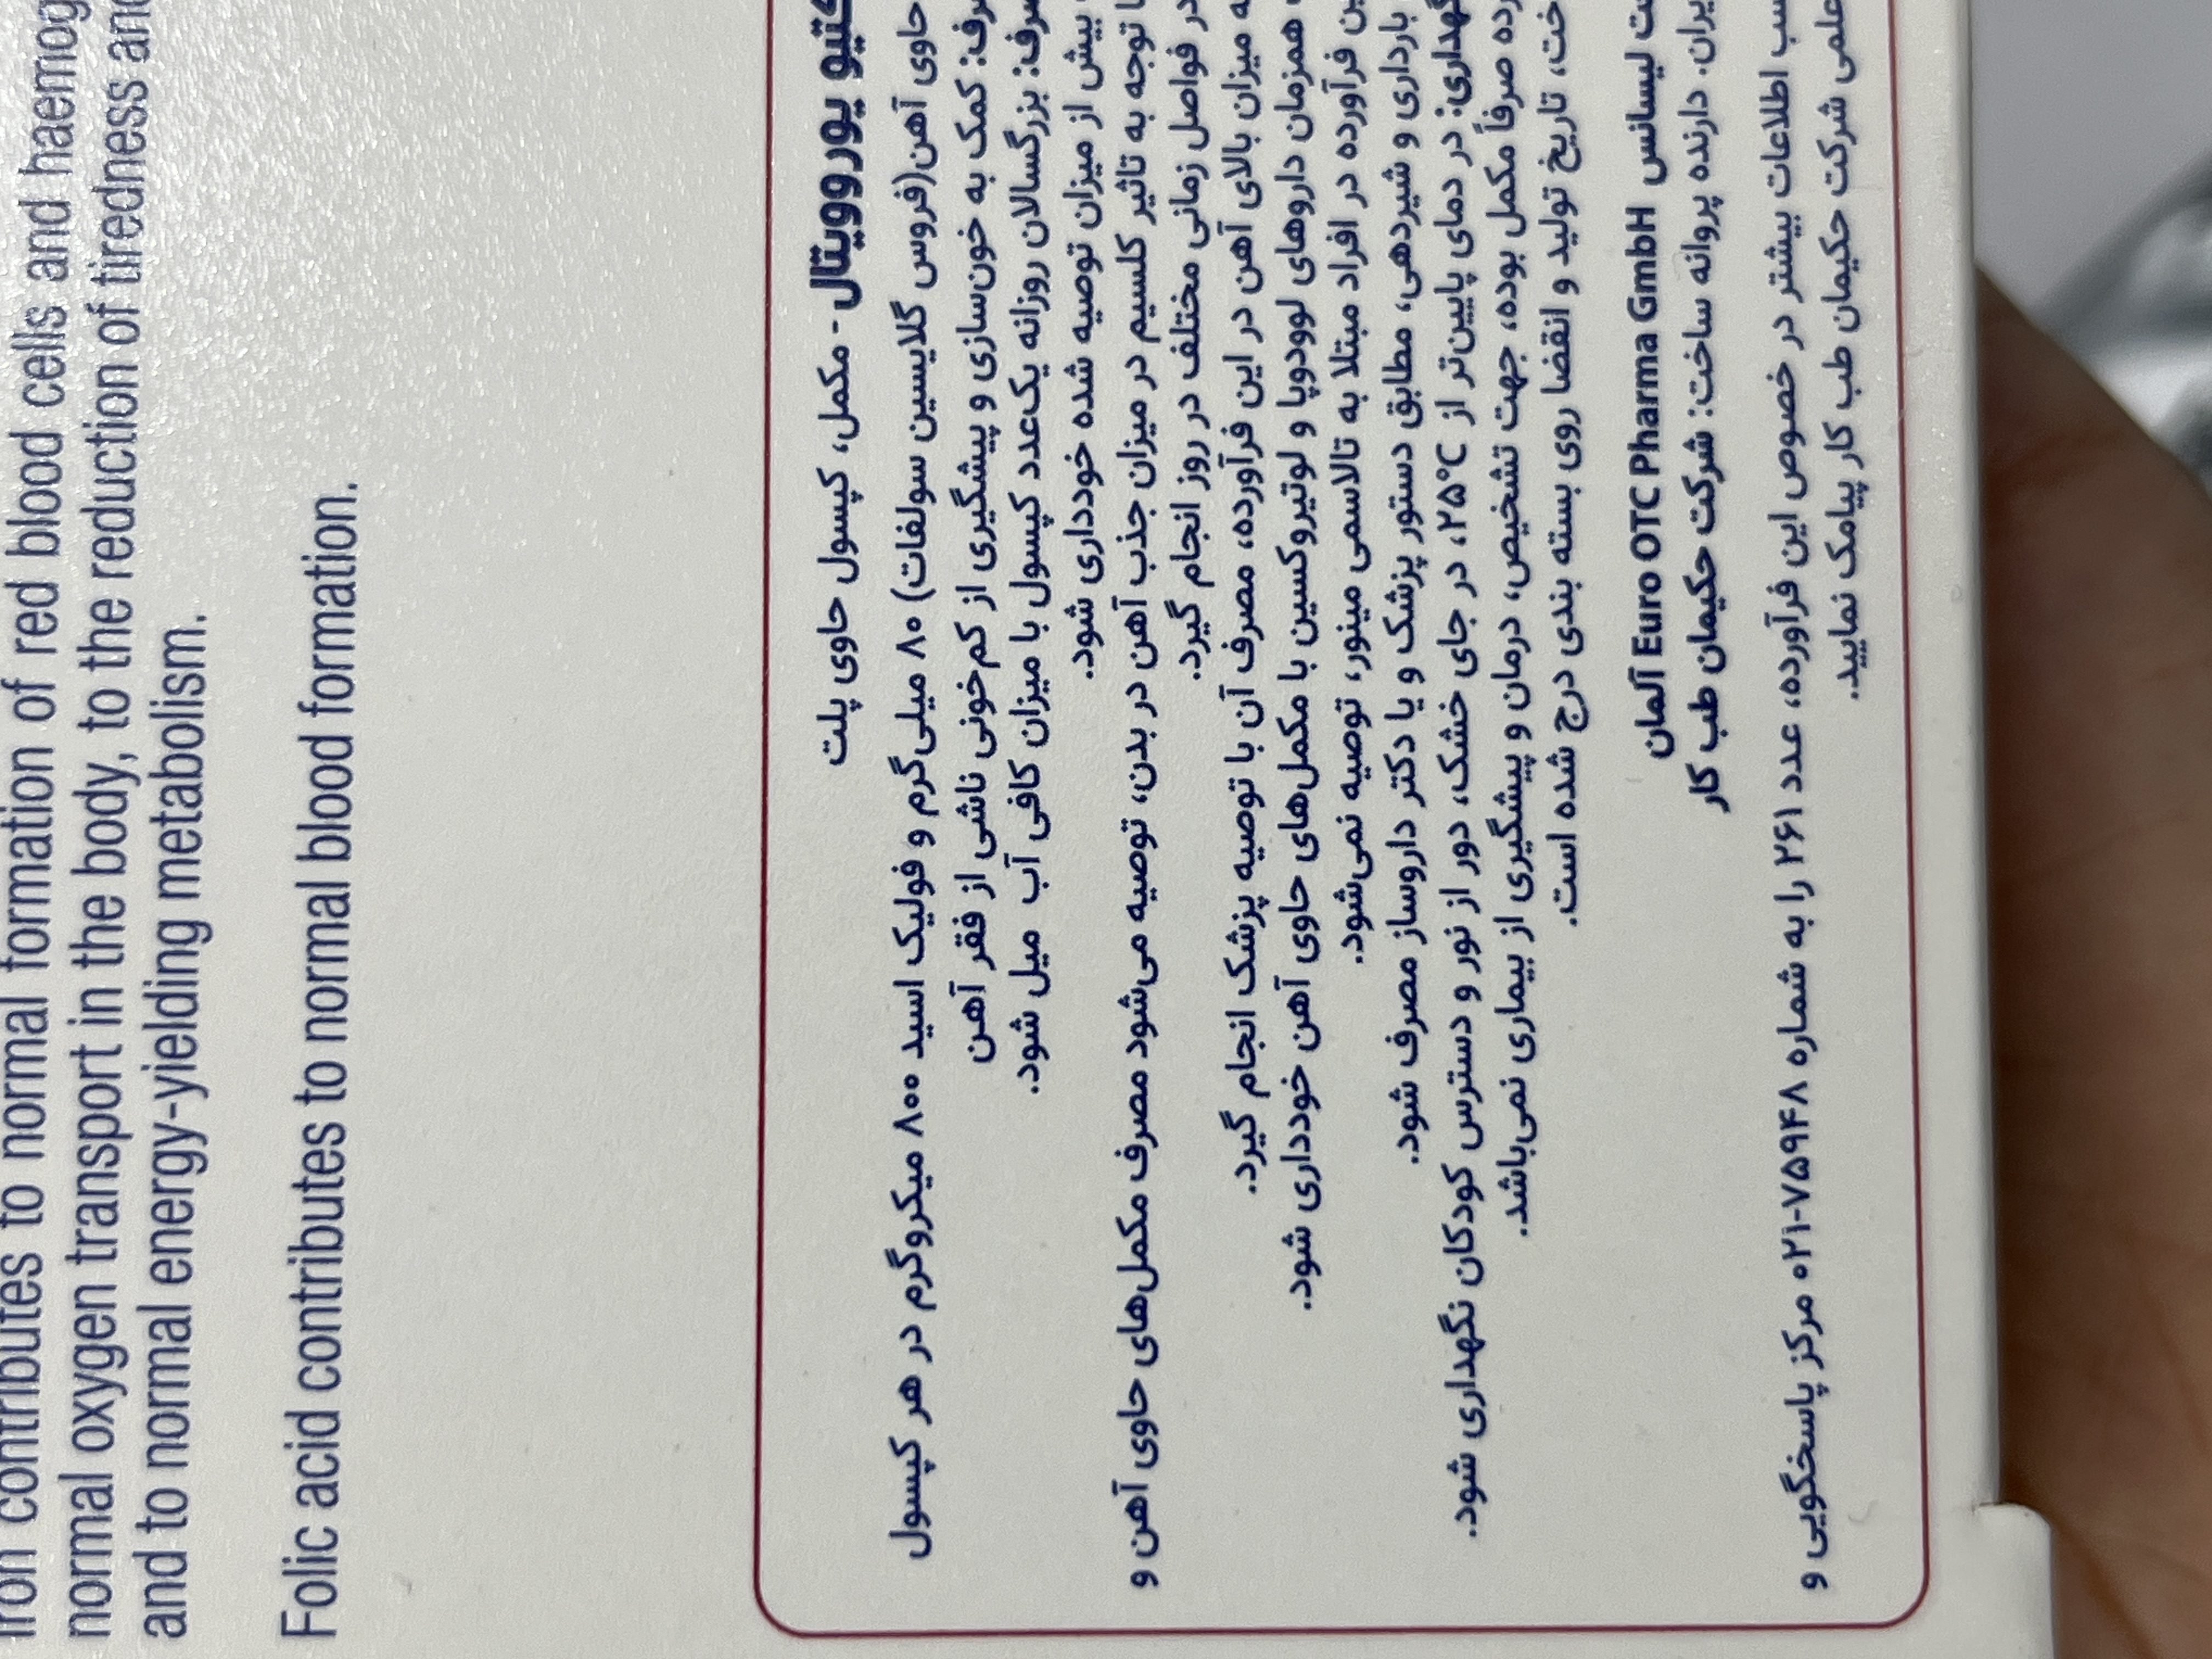 contributes to normal formation of red blood cells and
normal oxygen transport in the body, to the reduction of tiredness
and to normal energy-yielding metabolism.
Folic acid contributes to normal blood formation.
یوروویتال - مکمل، کپسول حاوی پلت
حاوی آهن(فروس گلایسین سولفات) ۸۰ میلی‌گرم و فولیک اسید ۸۰۰ میکروگرم در هر کپسول
کمک به خون‌سازی و پیشگیری از کم‌خونی ناشی از فقر آهن
بزرگسالان روزانه یک‌عدد کپسول با میزان کافی آب میل شود.
بیش از میزان توصیه شده خودداری شود.
توجه به تاثیر کلسیم در میزان جذب آهن در بدن، توصیه می‌شود مصرف مکمل‌های حاوی آهن و
در فواصل زمانی مختلف در روز انجام گیرد.
میزان بالای آهن در این فرآورده، مصرف آن با توصیه پزشک انجام گیرد.
همزمان داروهای لوودوپا و لوتیروکسین با مکمل‌های حاوی آهن خودداری شود.
فرآورده در افراد مبتلا به تالاسمی مینور، توصیه نمی‌شود.
بارداری و شیردهی، مطابق دستور پزشک و یا دکتر داروساز مصرف شود.
در دمای پایین‌تر از ۲۵°C، در جای خشک، دور از نور و دسترس کودکان نگهداری شود.
صرفاً مکمل بوده، جهت تشخیص، درمان و پیشگیری از بیماری نمی‌باشد.
تاریخ تولید و انقضا روی بسته بندی درج شده است.
لیسانس Euro OTC Pharma GmbH آلمان
دارنده پروانه ساخت: شرکت حکیمان طب کار
اطلاعات بیشتر در خصوص این فرآورده، عدد ۲۶۱ را به شماره ۷۵۹۴۸-۰۲۱ مرکز پاسخگویی و
علمی شرکت حکیمان طب کار پیامک نمایید.